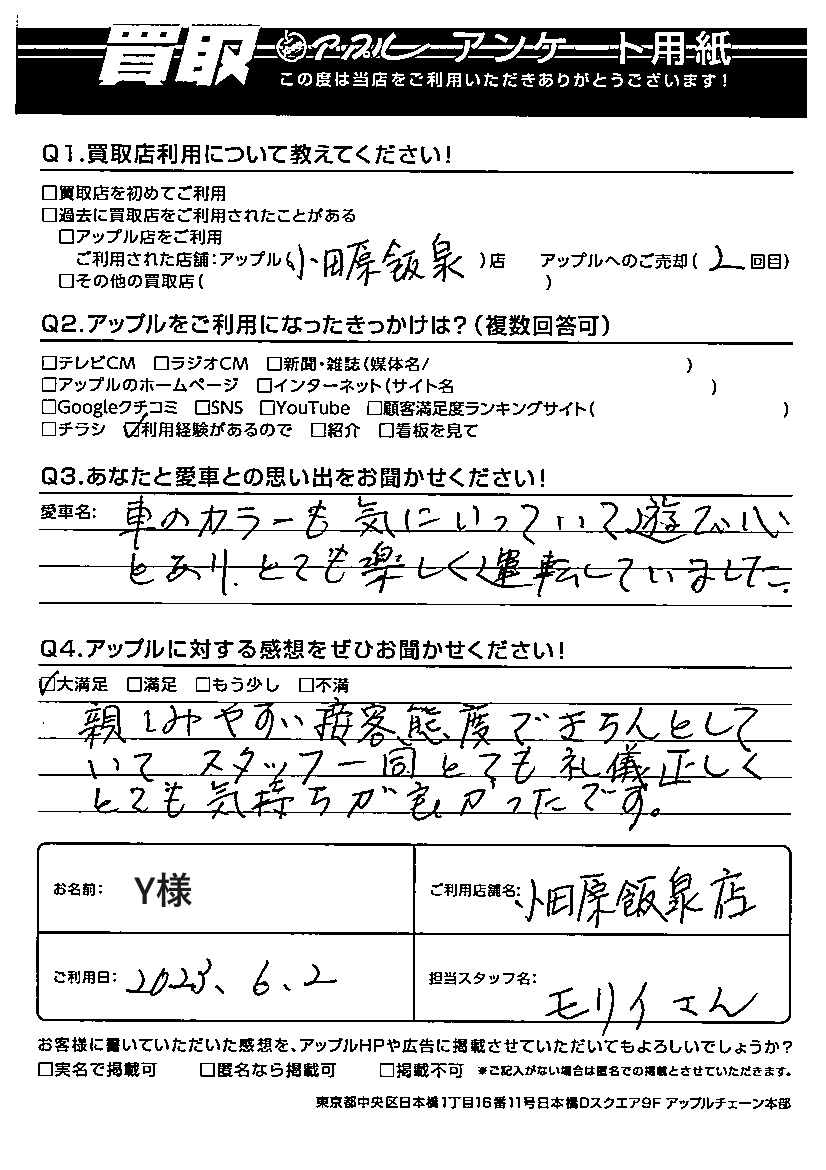 買取 アップル アンケート用紙
この度は当店をご利用いただきありがとうございます!
Q1.買取店利用について教えてください!
□買取店を初めてご利用
□過去に買取店をご利用されたことがある
□アップル店をご利用
ご利用された店舗:アップル(小田原飯泉)店 アップルへのご売却(2回目)
□その他の買取店( )
Q2.アップルをご利用になったきっかけは?(複数回答可)
□テレビCM □ラジオCM □新聞・雑誌(媒体名/ )
□アップルのホームページ □インターネット(サイト名 )
□Googleクチコミ □SNS □YouTube □顧客満足度ランキングサイト( )
□チラシ ☑利用経験があるので □紹介 □看板を見て
Q3.あなたと愛車との思い出をお聞かせください!
愛車名: 車のカラーも気にいっていて遊び心
とあり、とても楽しく運転していました。
Q4.アップルに対する感想をぜひお聞かせください!
☑大満足 □満足 □もう少し □不満
親しみやすい接客態度できちんとして
いて スタッフ一同とても礼儀正しく
とても気持ちが良かったです。
お名前: Y様 ご利用店舗名: 小田原飯泉店
ご利用日: 2023、6、2 担当スタッフ名: モリイさん
お客様に書いていただいた感想を、アップルHPや広告に掲載させていただいてもよろしいでしょうか?
□実名で掲載可 □匿名なら掲載可 □掲載不可 *ご記入がない場合は匿名での掲載とさせていただきます。
東京都中央区日本橋1丁目16番11号日本橋Dスクエア9F アップルチェーン本部